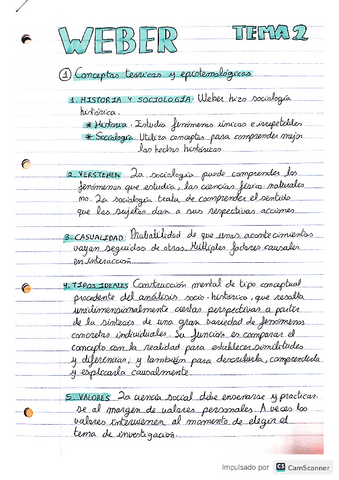 WEBER TEMA 2
① Conceptos teóricos y epistemológicos
1. HISTORIA Y SOCIOLOGÍA: Weber hizo sociología
histórica.
* Historia: Estudia fenómenos únicos e irrepetibles
* Sociología: Utiliza conceptos para comprender mejor
los hechos históricos.
2. VERSTEHEN: La sociología puede comprender los
fenómenos que estudia, las ciencias físico-naturales
no. La sociología trata de comprender el sentido
que los sujetos dan a sus respectivas acciones
3. CASUALIDAD: Probabilidad de que unos acontecimientos
vayan seguidos de otros. Múltiples factores causales
en interacción.
4. TIPOS IDEALES Construcción mental de tipo conceptual
procedente del análisis socio-histórico, que resalta
unidimensionalmente ciertas perspectivas a partir
de la síntesis de una gran variedad de fenómenos
concretos individuales. Su función es comparar el
concepto con la realidad para establecer similitudes
y diferencias, y también para describirla, comprenderla
y explicarla causalmente.
5. VALORES La ciencia social debe enseñarse y practicar-
se al margen de valores personales. A veces los
valores intervienen al momento de elegir el
tema de investigación.
Impulsado por CS CamScanner